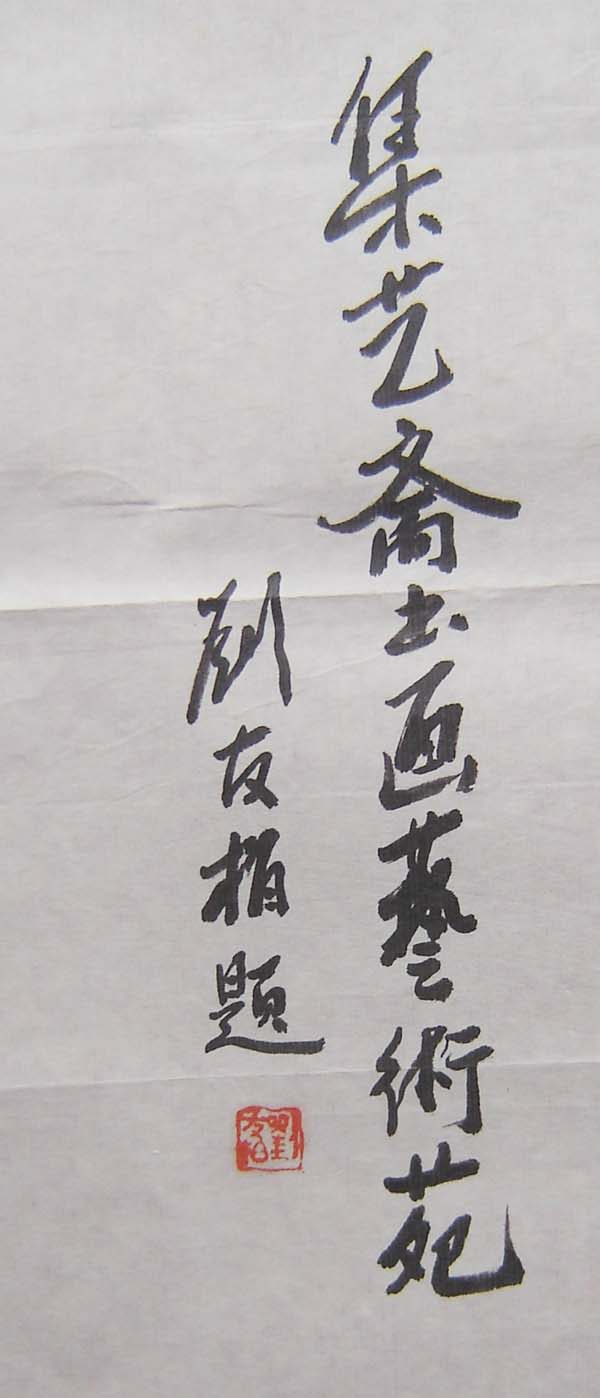 集艺斋书画藝術苑
刘友題